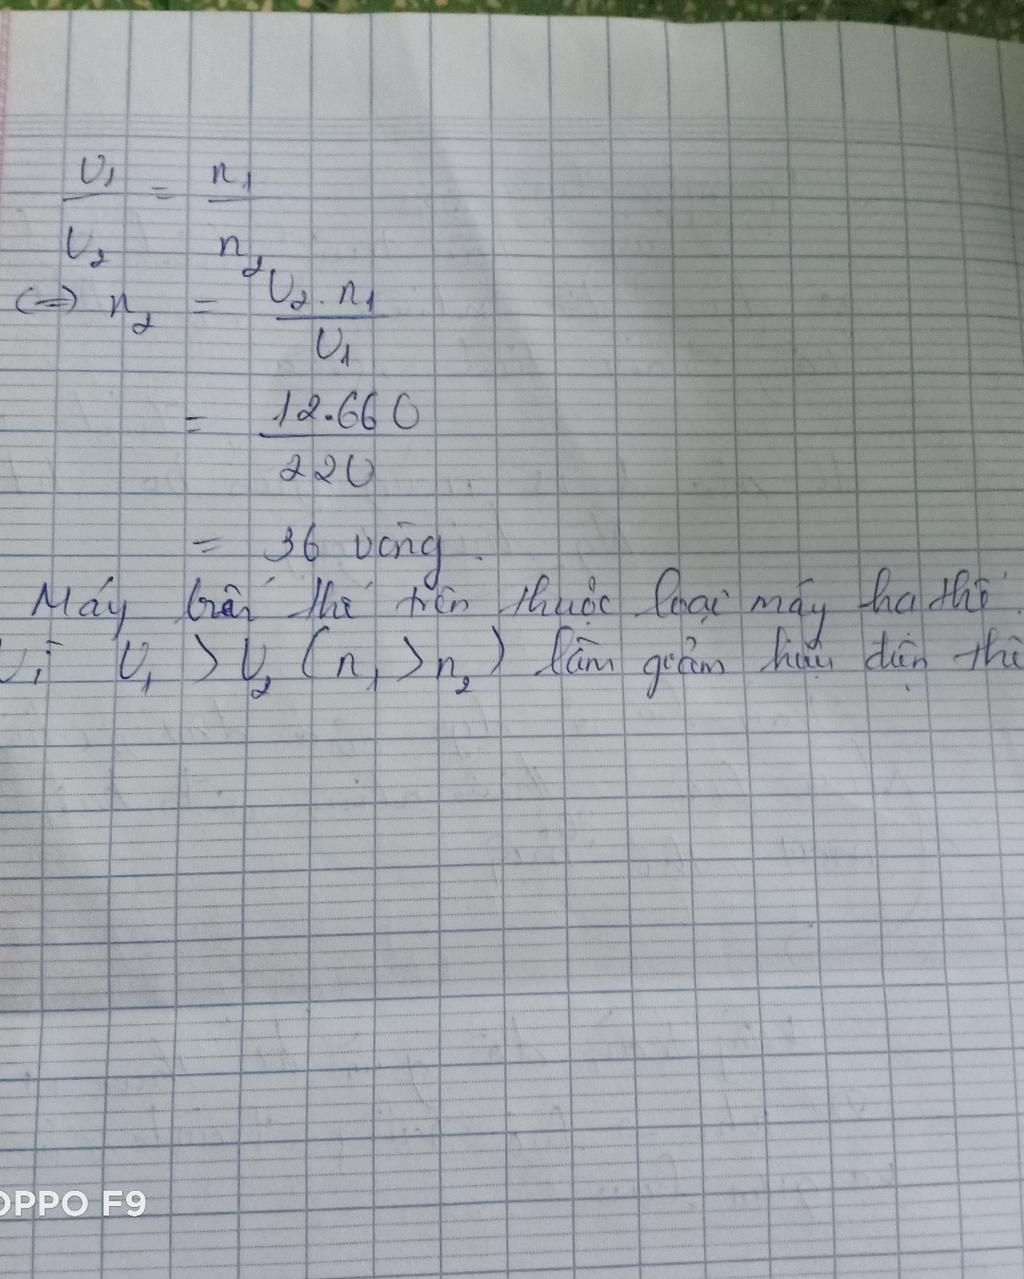 U₁/U₂ = n₁/n₂
<=> n₂ = U₂.n₁/U₁
= 12.660/220
= 36 vòng.
Máy biến thế trên thuộc loại máy hạ thế.
Vì U₁ > U₂ (n₁ > n₂) làm giảm hiệu điện thế
OPPO F9